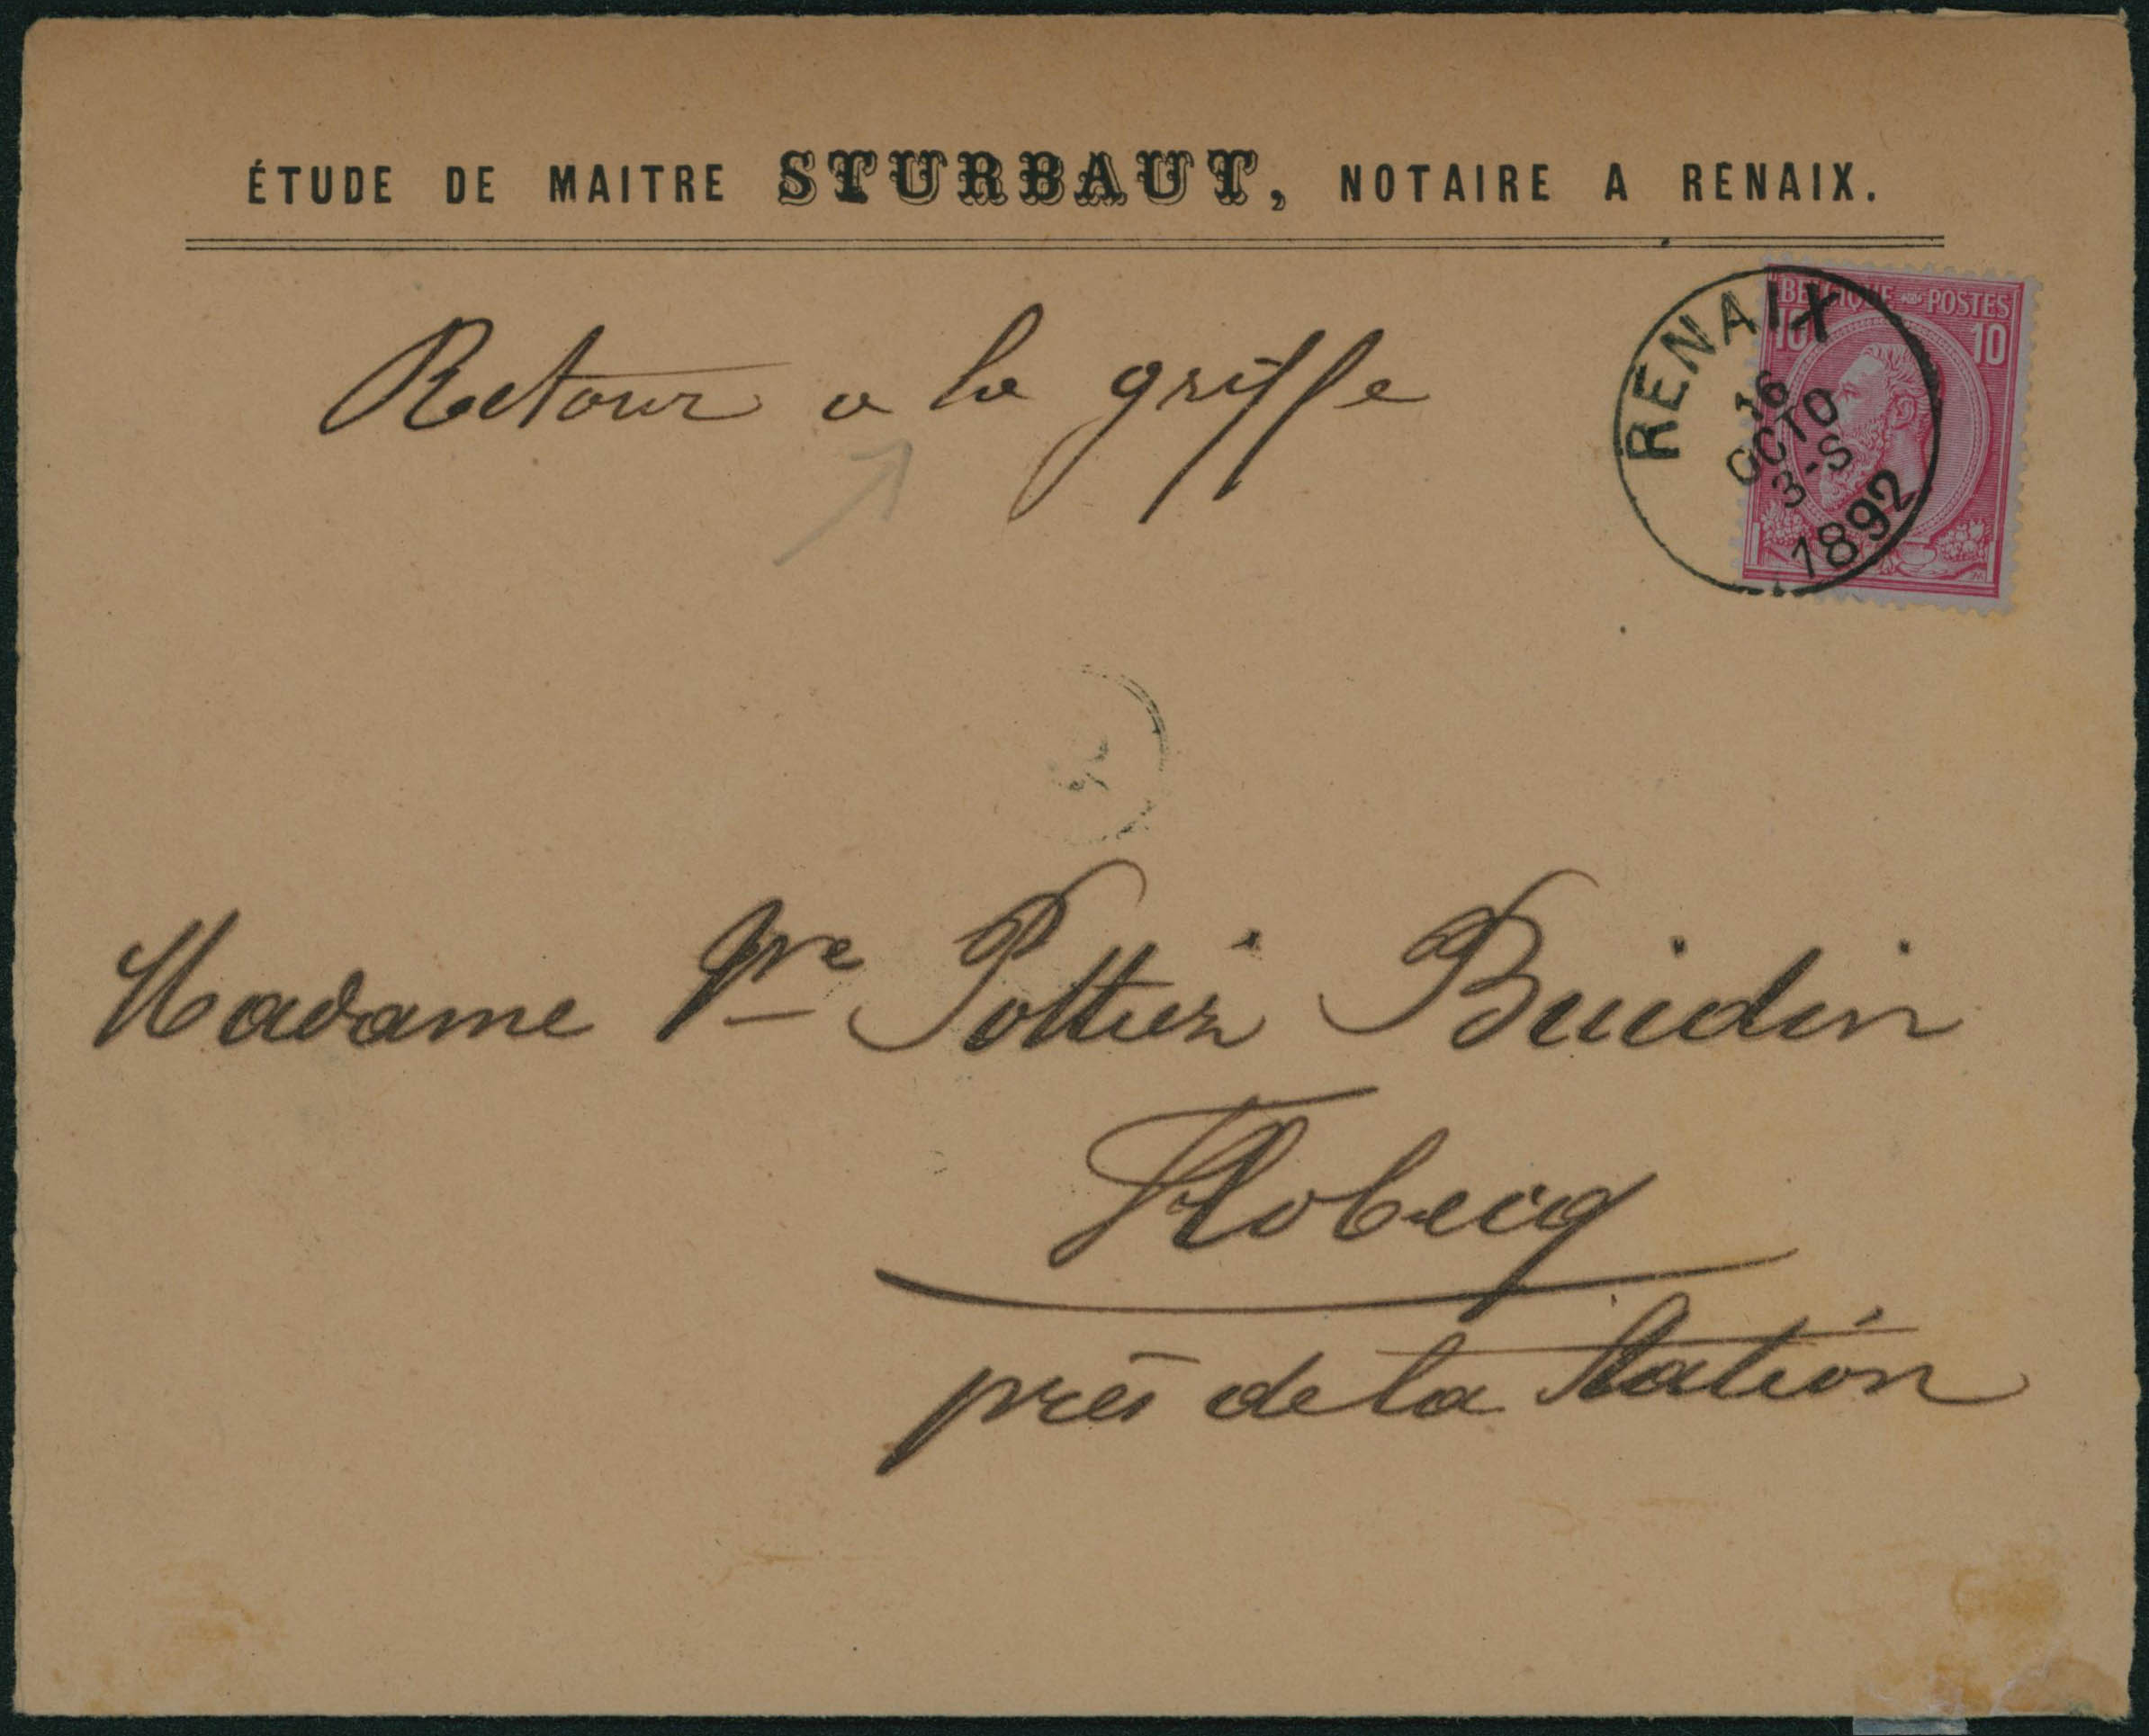 ÉTUDE DE MAITRE STURBAUT, NOTAIRE A RENAIX.
Retour a la griffe
BELGIQUE POSTES
10 10
RENAIX
16
OCTO
3-S
1892
Madame Vve Pottiez Buidin
Flobecq
près de la Station